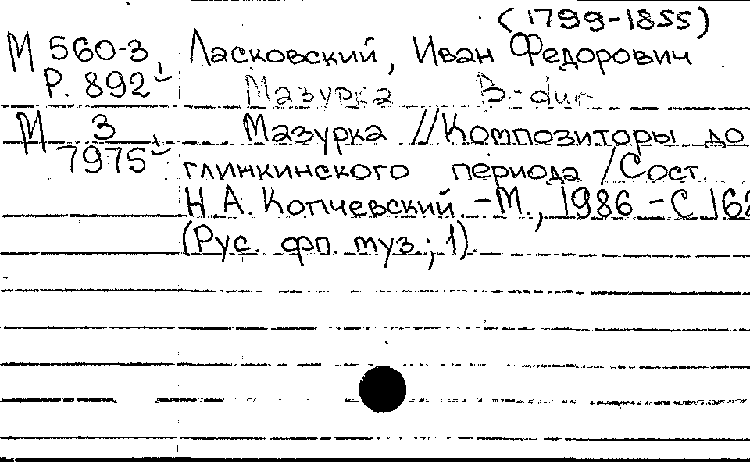 (1799-1855)
М 560-3 Ласковский, Иван Федорович
Р. 892 Мазурка B-dur
М 3 Мазурка // Композиторы до
7975 глинкинского периода / Сост.
Н. А. Копчевский. - М., 1986 - С 162
(Рус. фп. муз.; 1).